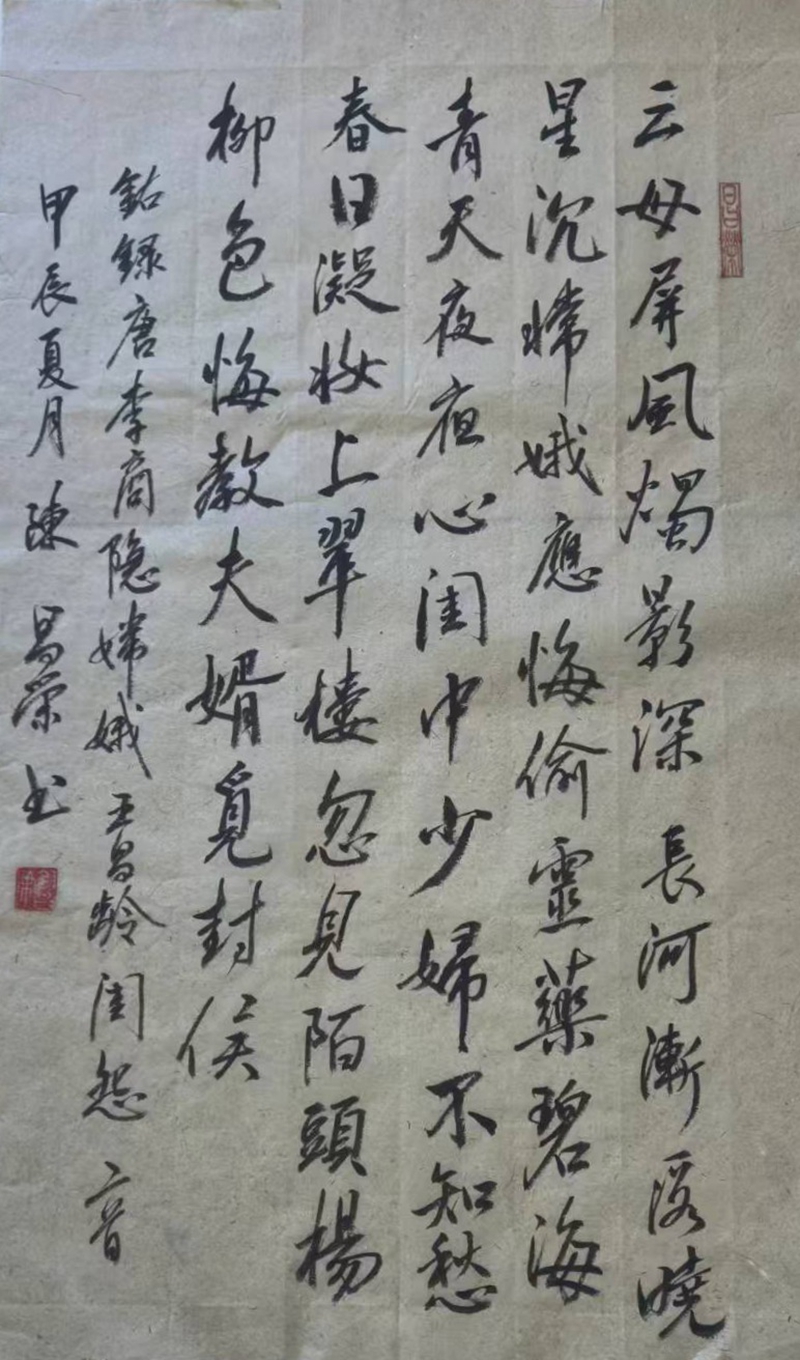 云母屏風燭影深長河漸落曉
星沉嫦娥應悔偷靈藥碧海
青天夜夜心閨中少婦不知愁
春日凝妝上翠楼忽見陌頭楊
柳色悔教夫婿覓封侯
鈷錄唐李商隐嫦娥王昌龄闺怨二首
甲辰夏月陳昌荣书